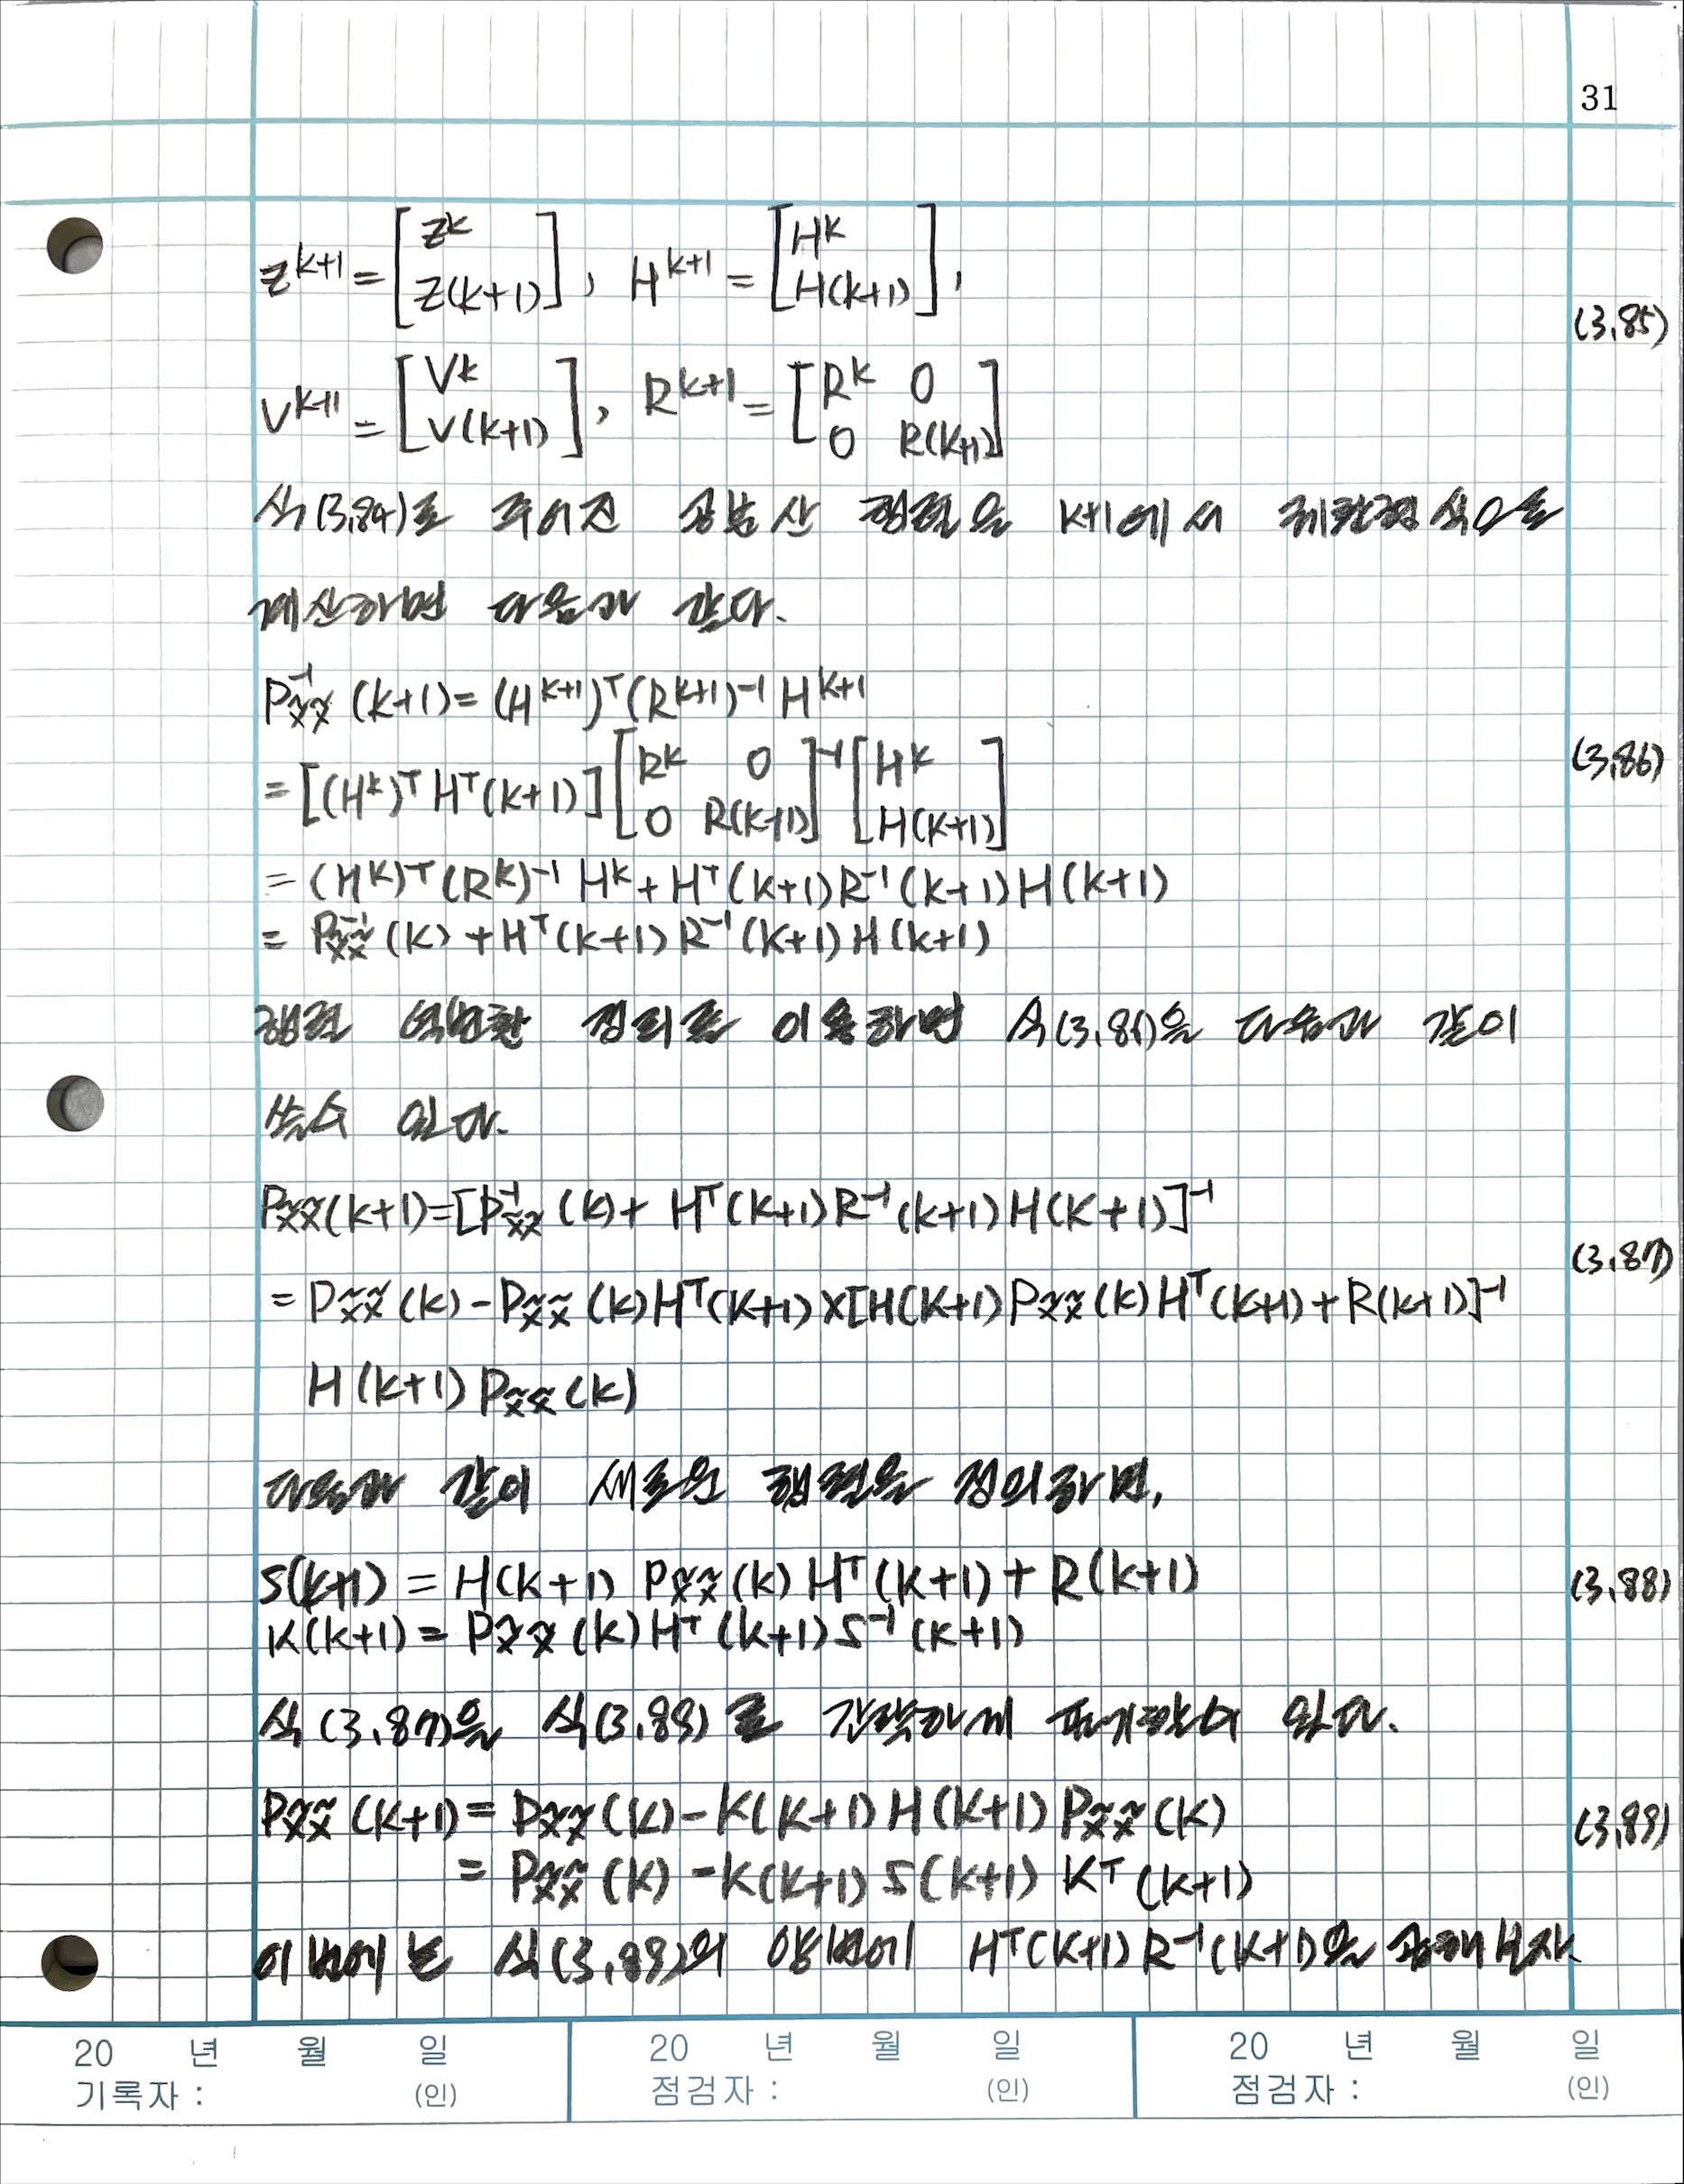 31
z^{k+1} = [z^k ; z(k+1)], H^{k+1} = [H^k ; H(k+1)],
(3.85)
v^{k+1} = [v^k ; v(k+1)], R^{k+1} = [R^k 0 ; 0 R(k+1)]
식(3.84)로 주어진 공분산 행렬을 k+1에서 귀환형식으로
계산하면 다음과 같다.
P_{x̃x̃}^{-1}(k+1) = (H^{k+1})^T (R^{k+1})^{-1} H^{k+1}
(3.86)
= [(H^k)^T H^T(k+1)] [R^k 0 ; 0 R(k+1)]^{-1} [H^k ; H(k+1)]
= (H^k)^T (R^k)^{-1} H^k + H^T(k+1) R^{-1}(k+1) H(k+1)
= P_{x̃x̃}^{-1}(k) + H^T(k+1) R^{-1}(k+1) H(k+1)
행렬 역변환 정리를 이용하면 식(3.86)을 다음과 같이
쓸수 있다.
P_{x̃x̃}(k+1) = [P_{x̃x̃}^{-1}(k) + H^T(k+1) R^{-1}(k+1) H(k+1)]^{-1}
(3.87)
= P_{x̃x̃}(k) - P_{x̃x̃}(k) H^T(k+1) x [H(k+1) P_{x̃x̃}(k) H^T(k+1) + R(k+1)]^{-1}
H(k+1) P_{x̃x̃}(k)
다음과 같이 새로운 행렬을 정의하면,
S(k+1) = H(k+1) P_{x̃x̃}(k) H^T(k+1) + R(k+1) (3.88)
K(k+1) = P_{x̃x̃}(k) H^T(k+1) S^{-1}(k+1)
식(3.87)을 식(3.89)로 간략하게 표기할수 있다.
P_{x̃x̃}(k+1) = P_{x̃x̃}(k) - K(k+1) H(k+1) P_{x̃x̃}(k) (3.89)
= P_{x̃x̃}(k) - K(k+1) S(k+1) K^T(k+1)
이번에는 식(3.89)의 양변에 H^T(k+1) R^{-1}(k+1)을 곱해보자
20 년 월 일 20 년 월 일 20 년 월 일
기록자 : (인) 점검자 : (인) 점검자 : (인)